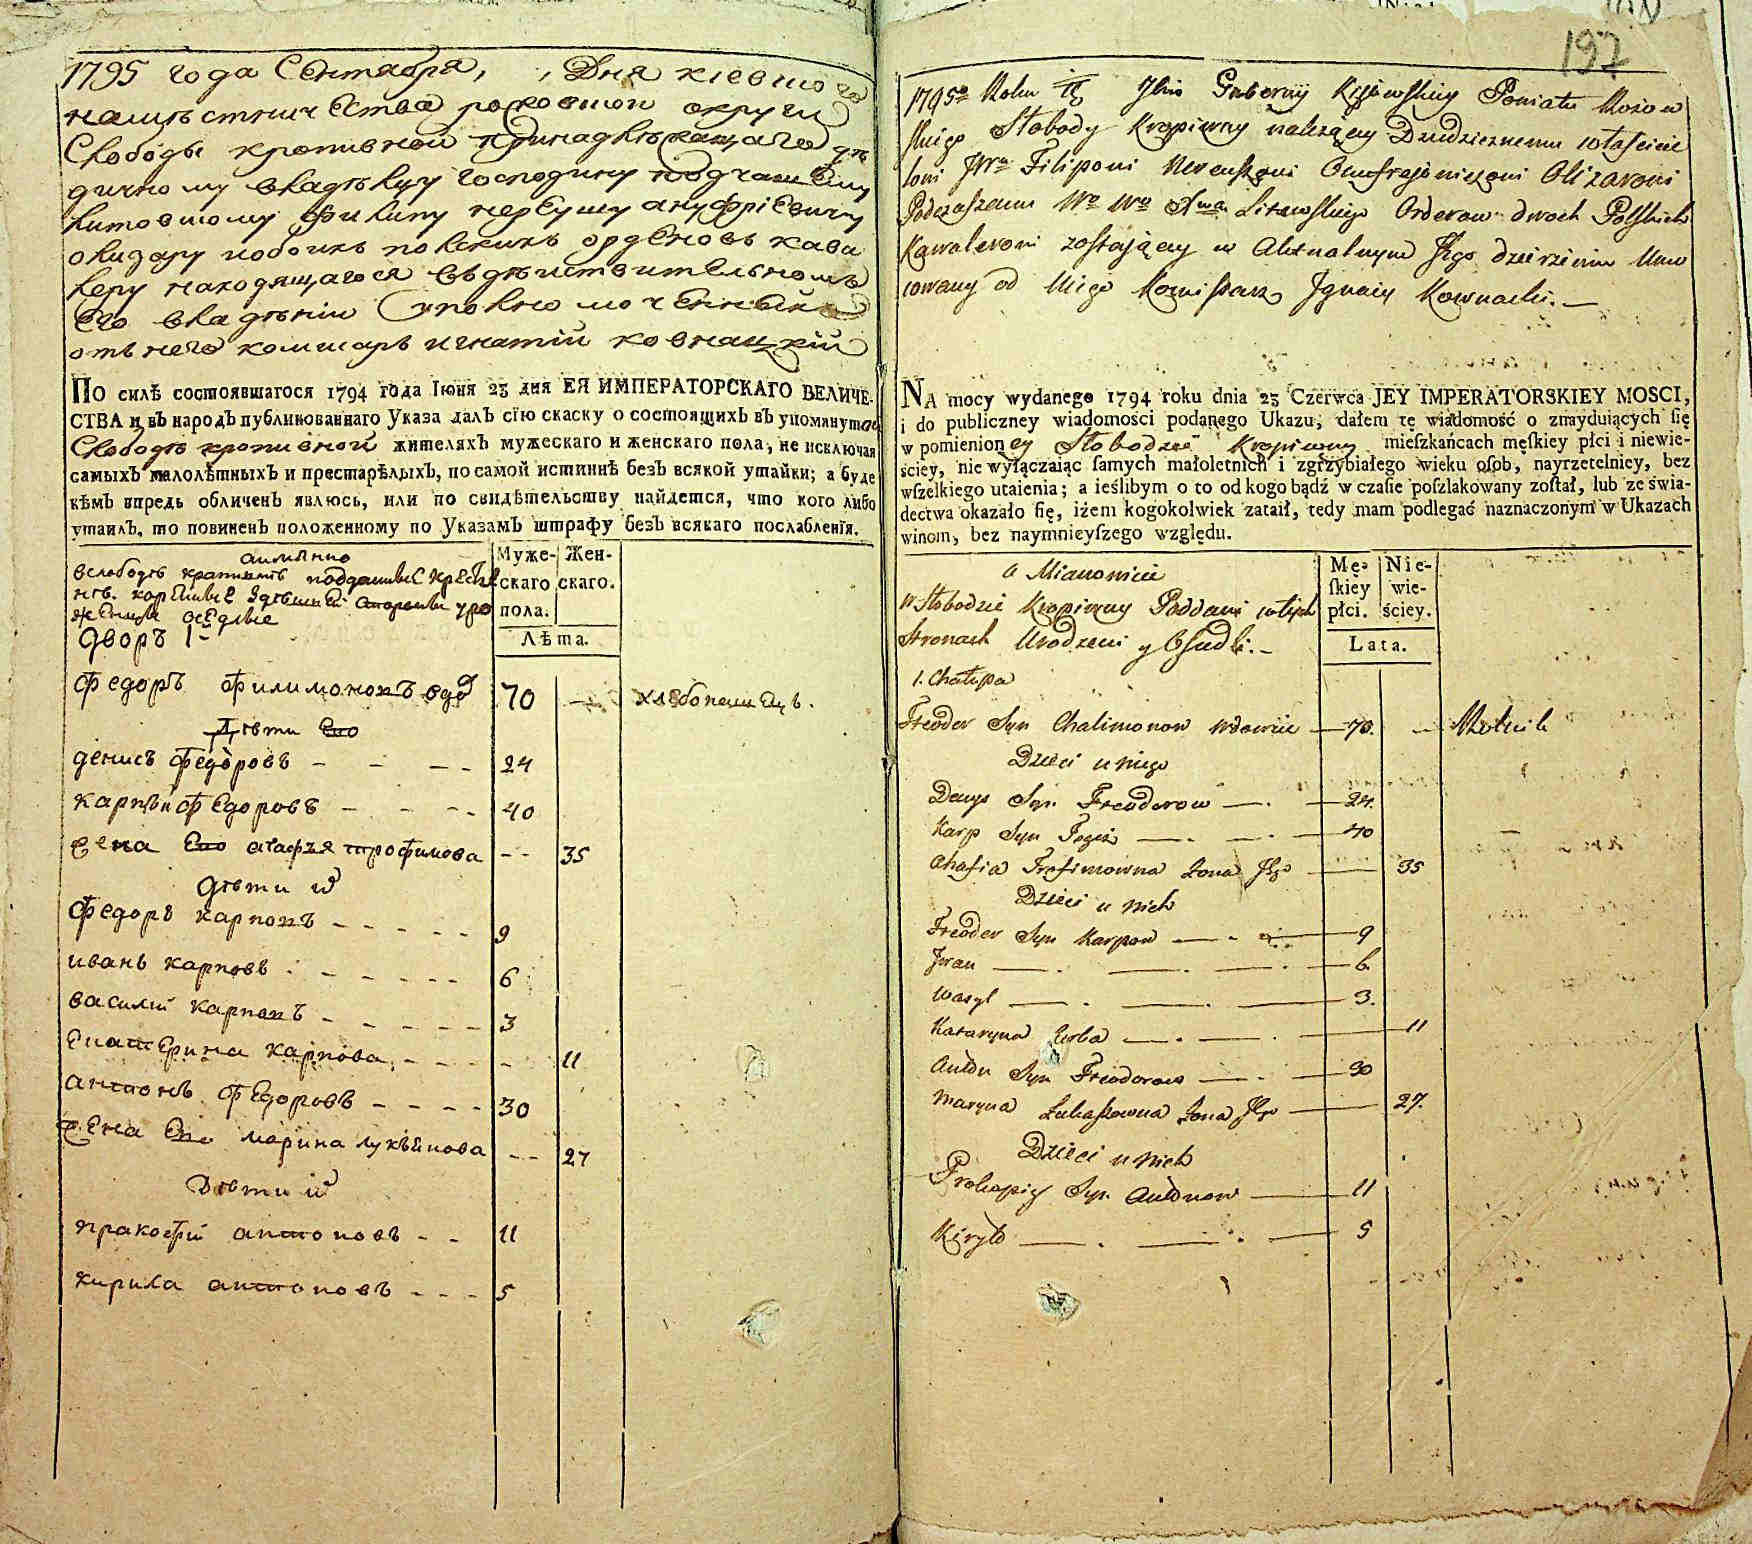 1795 года Сентября, , Дня кіевшого
намистничества роковшои округи
Слободы кропивной принадлежащаго дѣ
дичному владельцу господину подчашему
литовшому филипу нереушу ануфріевичу
олизару и обоихъ полскихъ орденовъ кава
леру находящагося въ действительномъ
его владѣніи уполномоченный
отъ него комисаръ игнатій ковнацкій
ПО силѣ состоявшагося 1794 года Іюня 23 дня ЕЯ ИМПЕРАТОРСКАГО ВЕЛИЧЕ-
СТВА и въ народъ публикованнаго Указа далъ сію скаску о состоящихъ въ упомянутой
Слободѣ кропивной жителяхъ мужескаго и женскаго пола, не исключая
самыхъ малолѣтныхъ и престарѣлыхъ, по самой истиннѣ безъ всякой утайки; а буде
кѣмъ впредь обличенъ явлюсь, или по свидѣтельству найдется, что кого либо
утаилъ, то повиненъ положенному по Указамъ штрафу безъ всякаго послабленія.
аимянно
вслободѣ крапивнѣ подданные крестья
не
женцы оседлые
дворъ 1
Муже-
скаго
пола.
Жен-
скаго.
Лѣта.
федоръ филимоновъ вдов 70 — хлебопашецъ.
Дѣти его
денисъ федоровъ - - - - 24
карпъ федоровъ - - - - 40
жена его агафия трофимова - - 35
дѣти их
федоръ карповъ - - - - - 9
иванъ карповъ - - - - - 6
василий карповъ - - - - - 3
екатерина карпова - - - - 11
антонъ федоровъ - - - - 30
жена его марина лукьянова - - 27
Дѣти их
пракофий антоновъ - - 11
кирила антоновъ - - - 5
197
1795o Roku Dnia Gubernij Kijowskiey Powiatu Rożow
skiego Słobody Kropiwny należącey Dziedzicznemu właścicie
lowi JWu Filipowi Nereuszowi Onufrejowiczowi Olizarowi
Podczaszemu Litewskiego Orderow dwoch Polskich
Kawalerowi zostającey w Aktualnym Jego dzierżeniu Umo
cowany od Niego Komisarz Ignacy Kownacki. —
NA mocy wydanego 1794 roku dnia 23 Czerwca JEY IMPERATORSKIEY MOSCI,
i do publiczney wiadomości podanego Ukazu, dałem tę wiadomość o znayduiących ſię
w pomienioney Słobodzie Kropiwny mieſzkańcach męſkiey płci i niewie-
ściey, nie wyłączaiąc ſamych małoletnich i zgrzybiałego wieku oſob, nayrzetelniey, bez
wſzelkiego utaienia; a ieślibym o to od kogo bądź w czaſie poſzlakowany zoſtał, lub ze świa-
dectwa okazało ſię, iżem kogokolwiek zataił, tedy mam podlegać naznaczonym w Ukazach
winom, bez naymnieyſzego względu.
a Mianowicie
w Słobodzie Kropiwny Poddani w tych
Stronach Urodzeni y Osiedli. —
Mę-
ſkiey
płci.
Nie-
wie-
ściey.
Lata.
1. Chałupa
Fteoder Syn Chalimonow wdowiec — 70. — Rolnik
Dzieci u niego
Denys Syn Fteoderow — 24.
Karp Syn Tegoż — 40
Ahafia Trofimowna Żona Jego — 35
Dzieci u nich
Fteoder Syn Karpow — 9
Jwan — 6.
Wasyl — 3.
Kataryna Corka — 11
Anton Syn Fteoderow — 30
Maryna Łukaszowna Żona Jego — 27.
Dzieci u nich
Prokopiy Syn Antonow — 11
Kiryło — 5